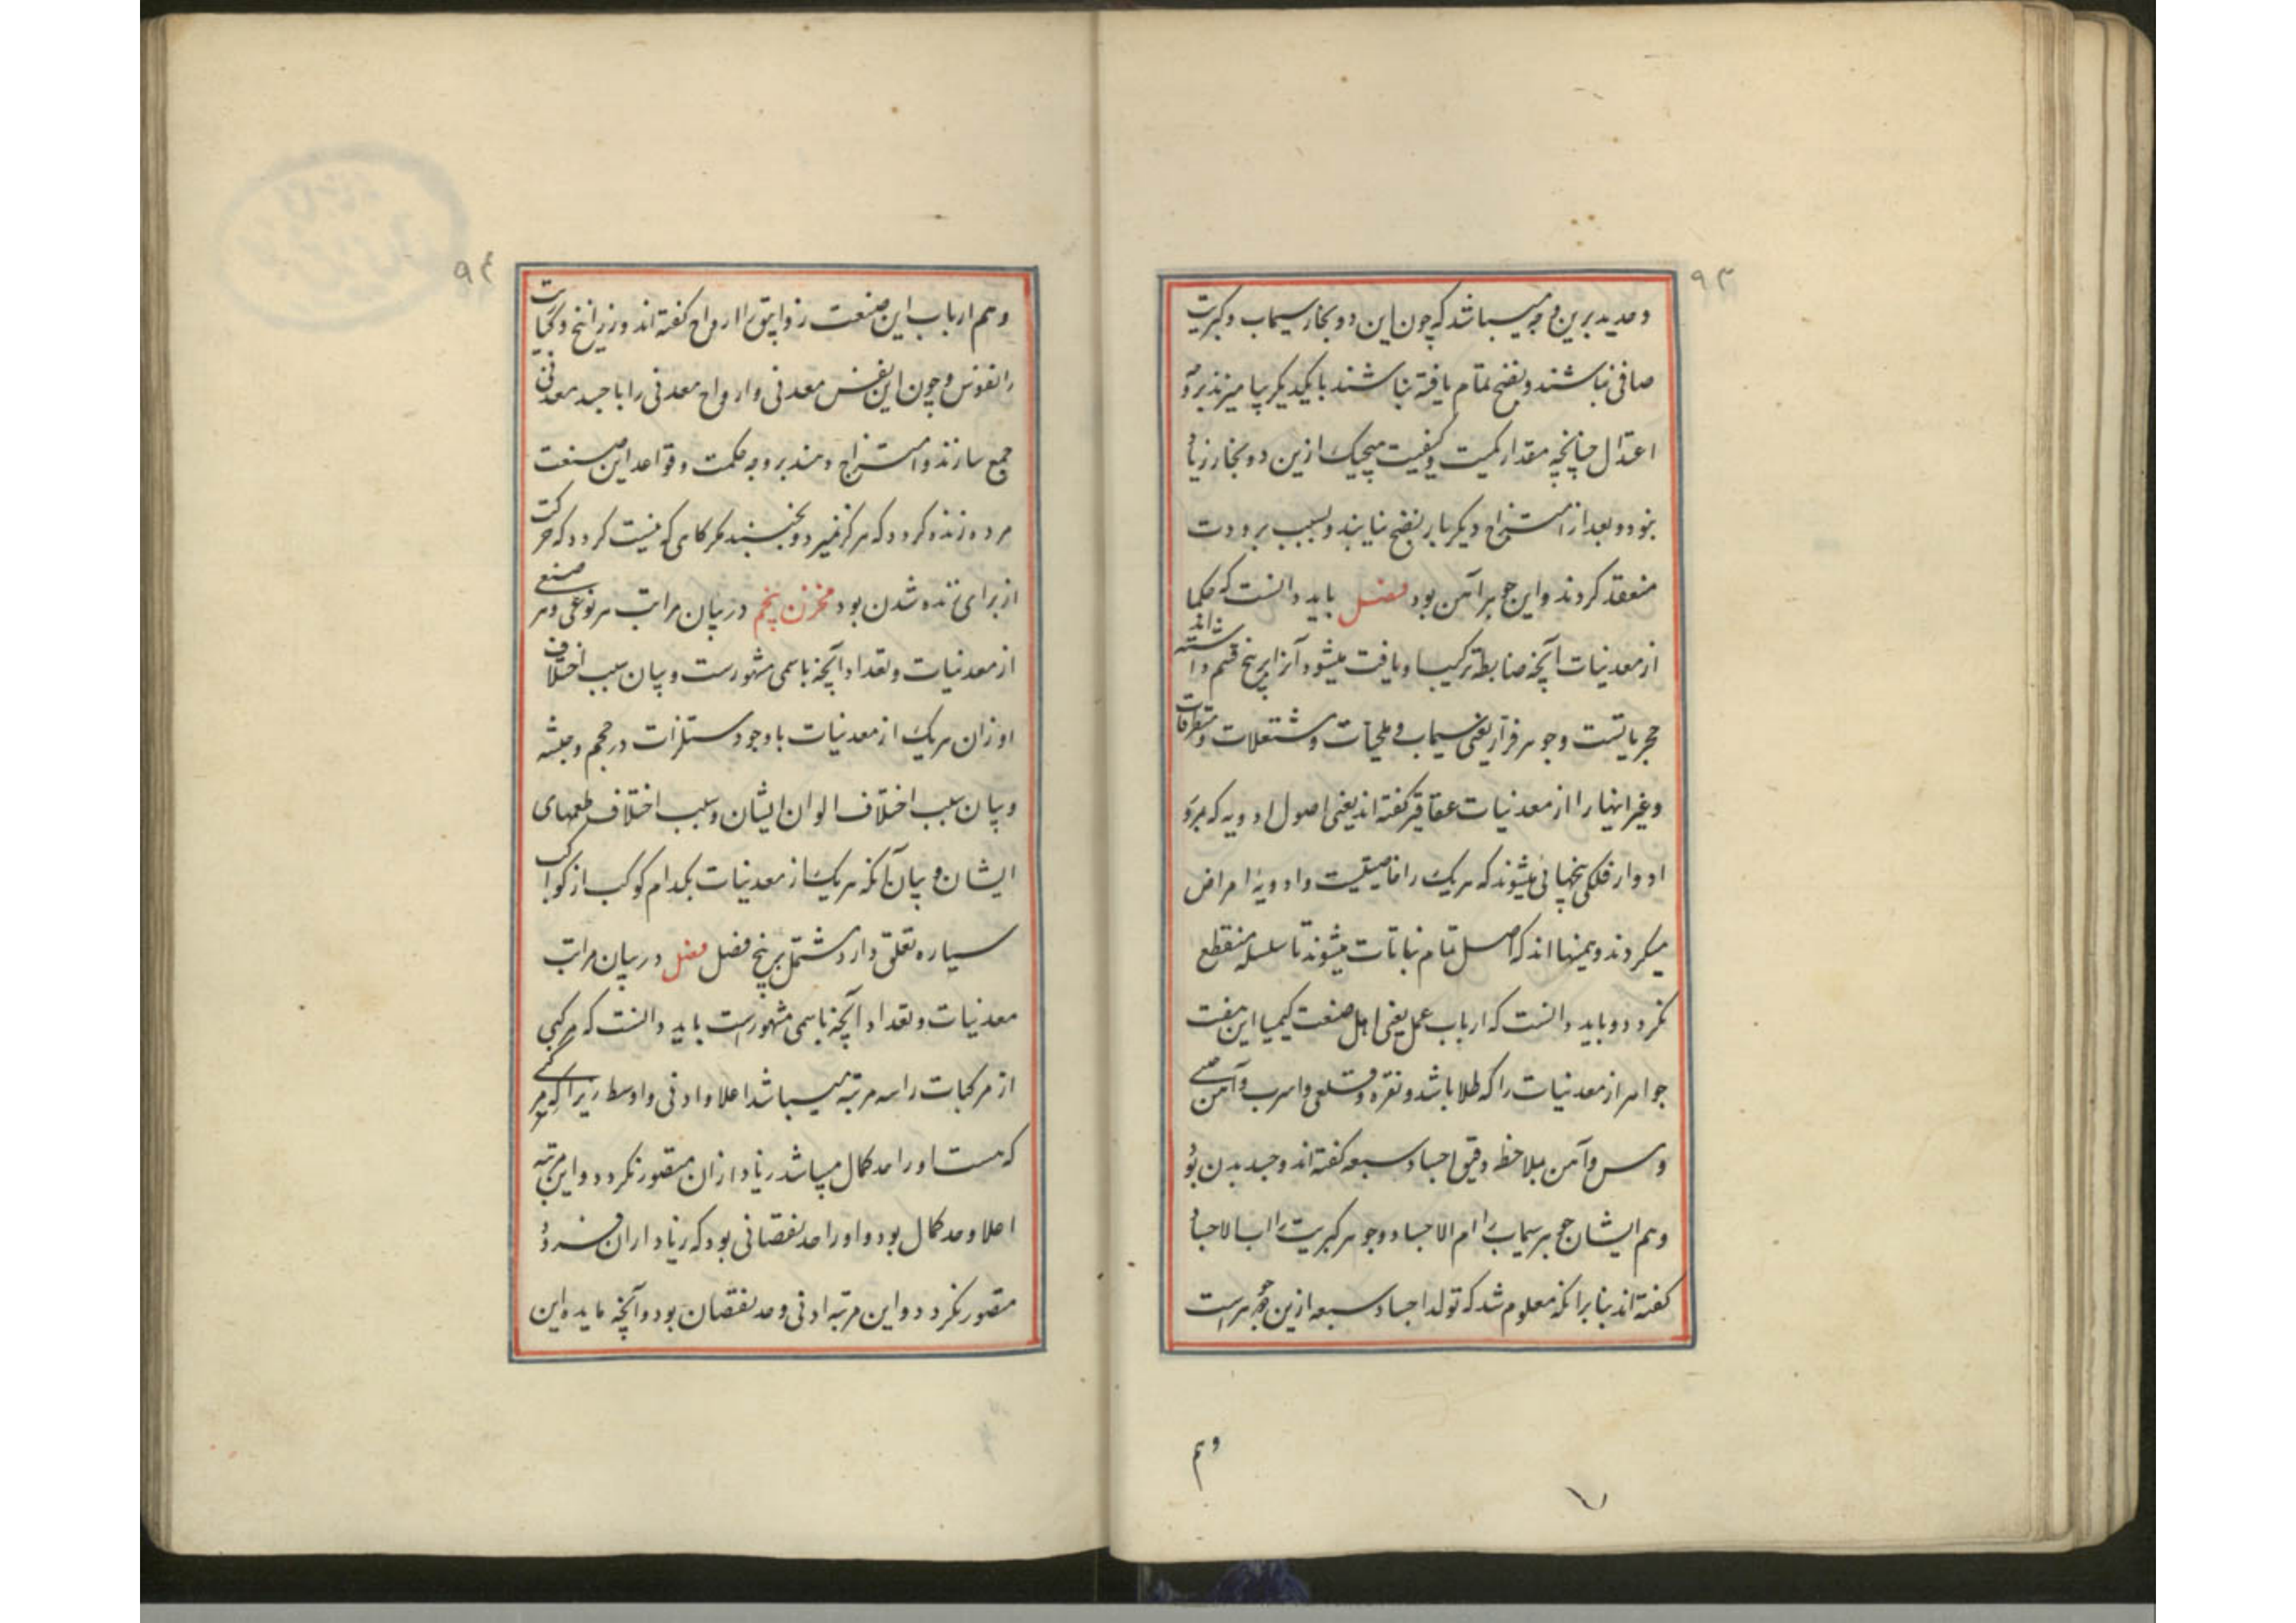 ۹۳
و حدید برین وجه میباشد که چون این دو بخار سیماب و کبریت
صافی نباشند و نضج تمام یافته نباشند با یکدیگر بیامیزند بر وجه
اعتدال چنانچه مقدار کمیت و کیفیت هیچیک ازین دو بخار زیاد
نبود و بعد از امتزاج دیگر بار نضج نیابند و بسبب برودت
منعقد گردند و این جوهر آهن بود فصل باید دانست که حکما
از معدنیات آنچه ضابطه ترکیب او یافت میشود آنرا بر پنج قسم داشته‌اند
حجریاتست و جوهر فرار یعنی سیماب و ملحیات و مشتعلات و متطرقات
و غیر اینها را از معدنیات عقاقیر گفته‌اند یعنی اصول ادویه که بمرور
ادوار فلکی بخهائی میشوند که هر یک را خاصیتیست و ادویهٔ امراض
میگردند و همینها اند که اصل تمام نباتات میشوند تا سلسله منقطع
نگردد و باید دانست که ارباب عمل یعنی اهل صنعت کیمیا این هفت
جواهر از معدنیات را که طلا باشد و نقره و قلعی و اسرب و آهن
و مس و آهن بملاحظه دقیق اجساد سبعه گفته‌اند و جسد بدن بود
و هم ایشان جوهر سیماب را ام الاجساد و جوهر کبریت را اب الاجساد
گفته‌اند بنا بر آنکه معلوم شد که تولد اجساد سبعه ازین دو جوهر است
و هم
۹۴
و هم ارباب این صنعت زوابق را ارواح گفته‌اند و زرانیخ و کباریت
را نفوس و چون این نفس معدنی و ارواح معدنی را با جسد معدنی
جمع سازند و امتزاج دهند بر وجه حکمت و قواعد این صنعت
مرده زنده گردد که هرگز نمیرد و نجنبد مگر کاهی که نیست گردد که حرکت
از برای زنده شدن بود مخزن پنجم در بیان مراتب هر نوعی و هر صنفی
از معدنیات و تعداد آنچه باسمی مشهورست و بیان سبب اختلاف
اوزان هر یک از معدنیات با وجود مستلزات در حجم و جثه
و بیان سبب اختلاف الوان ایشان و سبب اختلاف طعمهای
ایشان و بیان آنکه هر یک از معدنیات بکدام کوکب از کواکب
سیاره تعلق دارد مشتمل بر پنج فصل فصل در بیان مراتب
معدنیات و تعداد آنچه باسمی مشهورست باید دانست که هر مرکبی
از مرکبات را سه مرتبه میباشد اعلا و ادنی و اوسط زیرا که هر مرکبی
که هست او را حد کمال میباشد زیاد از آن متصور نگردد و این مرتبه
اعلا و حد کمال بود و او را حد نقصانی بود که زیاد از ان فرود
متصور نگردد و این مرتبه ادنی و حد نقصان بود و آنچه مابده این